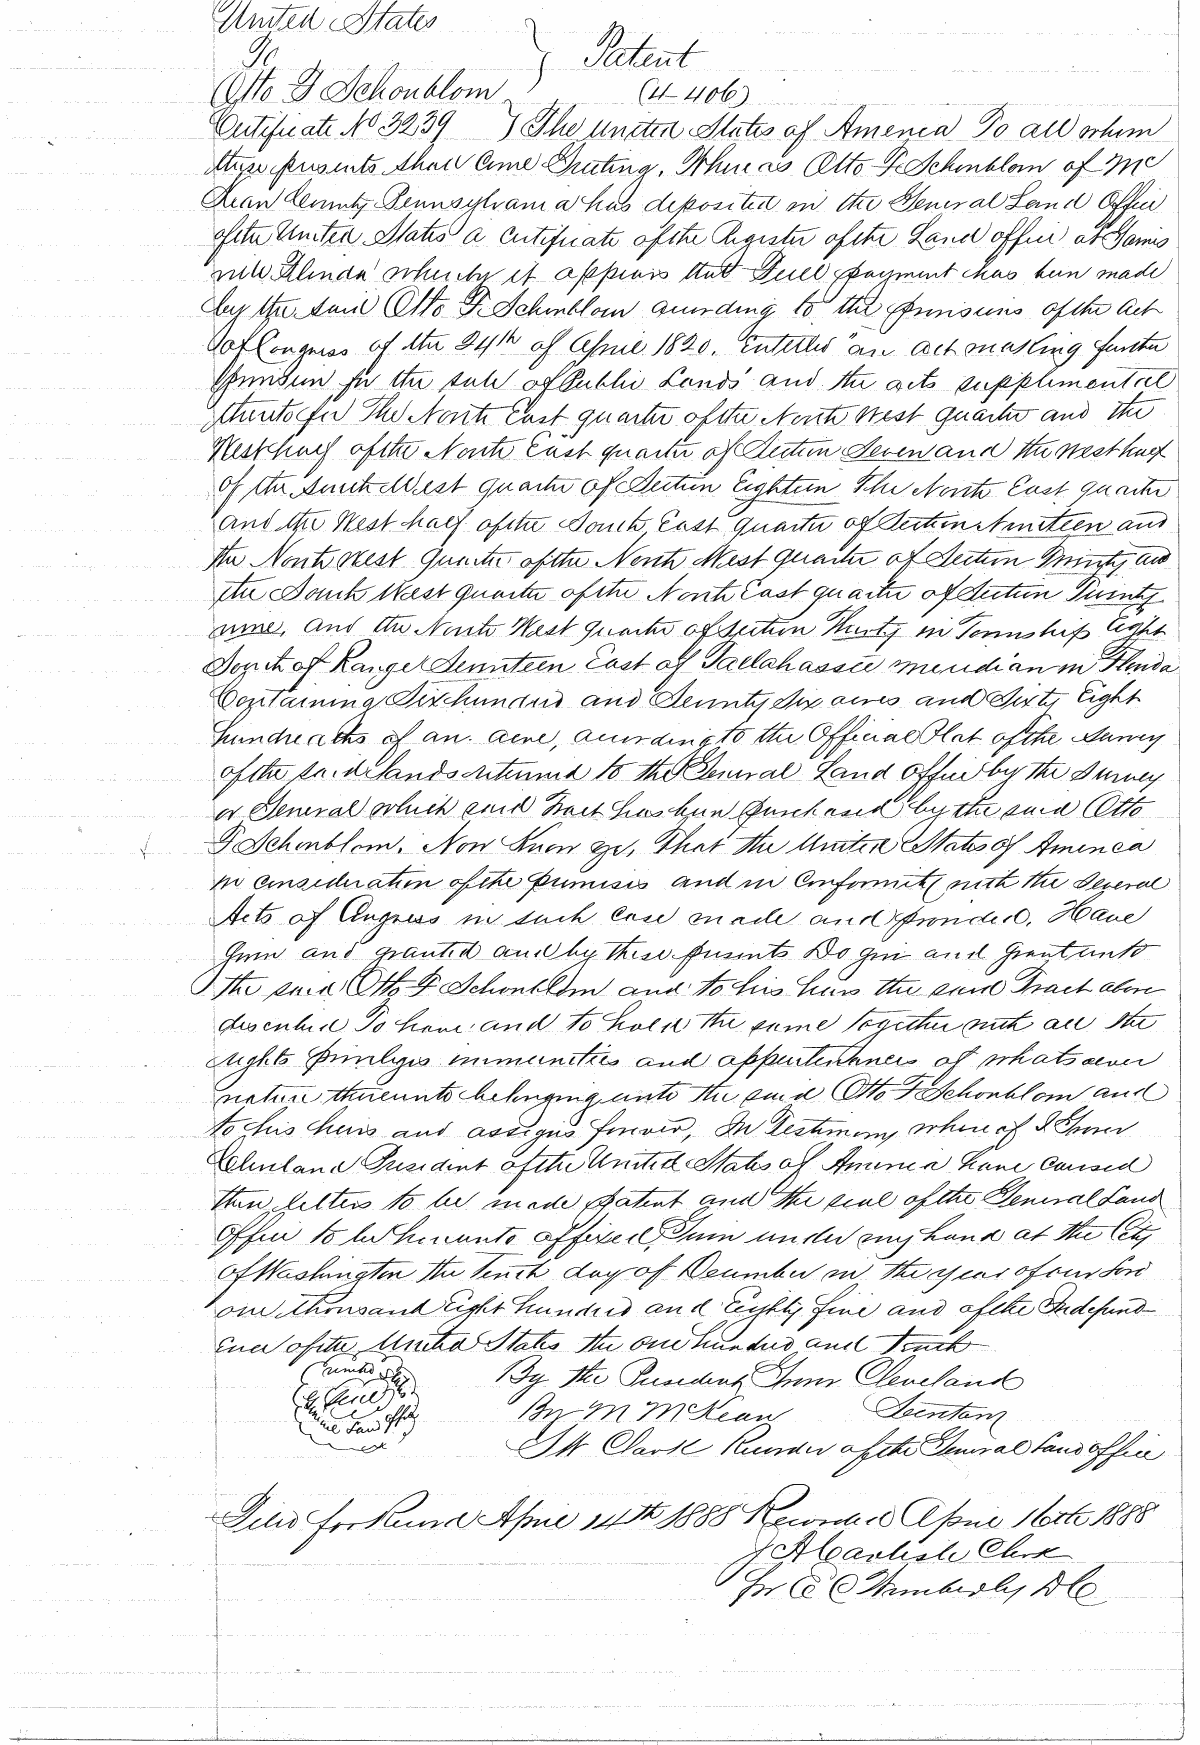 United States
To
Otto F Schonblom
Patent
(4-406)
Certificate No 3239 } The United States of America To all whom
these presents shall come Greeting, Whereas Otto F. Schonblom of Mc
Kean County Pennsylvania has deposited in the General Land Office
of the United States a certificate of the Register of the Land office at Gaines
ville Florida whereby it appears that Full payment has been made
by the said Otto F. Schonblom according to the provisions of the Act
of Congress of the 24th of April 1820. Entitled "an act making further
provision for the sale of Public Lands" and the acts supplimental
thereto for The North East quarter of the North West quarter and the
West half of the North East quarter of Section Seven and the west half
of the South West quarter of Section Eighteen The North East quarter
and the West half of the South East quarter of Section Nineteen and
the North West Quarter of the North West quarter of Section Twenty and
the South West quarter of the North East quarter of Section Twenty
nine, and the North West quarter of Section Thirty in Township Eight
South of Range Seventeen East of Tallahassee meridian in Florida
Containing Six hundred and Seventy Six acres and Sixty Eight
hundredths of an acre, according to the Official Plat of the Survey
of the said lands returned to the General Land Office by the Survey
or General which said Tract has been purchased by the said Otto
F Schonblom. Now Know ye, That the United States of America
in consideration of the premises and in conformity with the Several
Acts of Congress in such case made and provided, Have
given and granted and by these presents Do give and grant unto
the said Otto F Schonblom and to his heirs the said Tract above
described To have and to hold the same together with all the
rights privileges immunities and appurtenances of whatsoever
nature thereunto belonging unto the said Otto F Schonblom and
to his heirs and assigns forever, In Testimony where of I Grover
Cleveland President of the United States of America have caused
these letters to be made patent and the seal of the General Land
Office to be hereunto affixed Given under my hand at the City
of Washington the Tenth day of December in the year of our Lord
one thousand Eight hundred and Eighty five and of the Independ-
ence of the United States the one hundred and Tenth
By the President Grover Cleveland
By M McKean Secretary
S W Clark Recorder of the General Land office
United States
General Land Office
Filed for Record April 14th 1888 Recorded April 16th 1888
J A Carlisle Clerk
for C C Wimberly D C